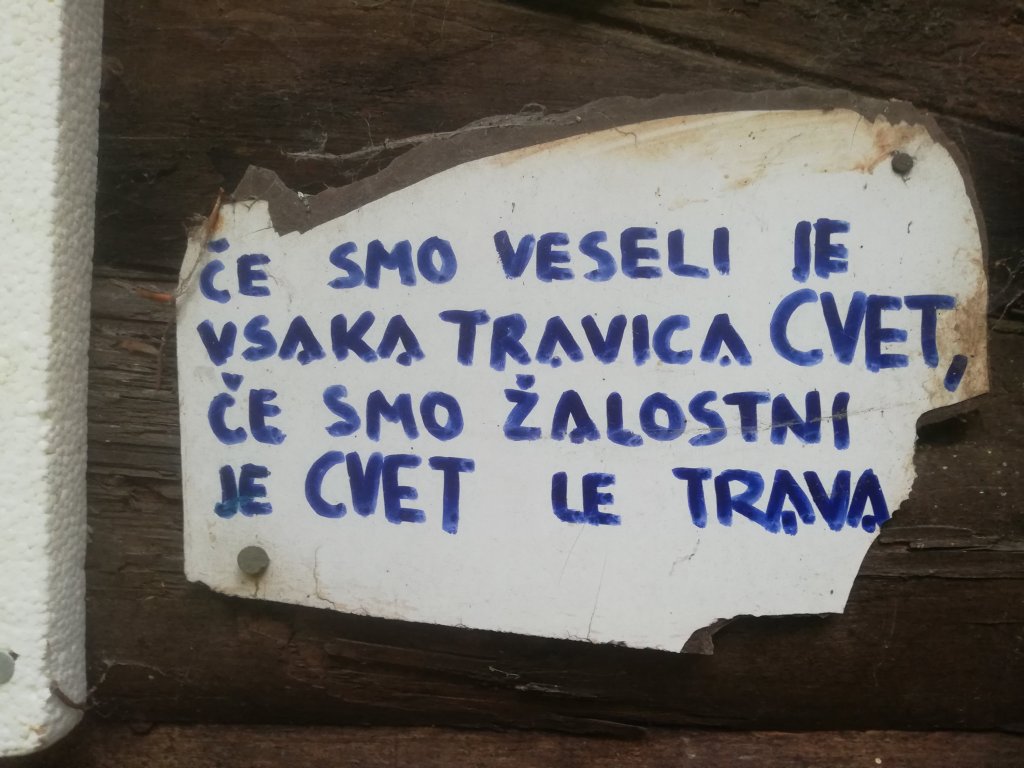 ČE SMO VESELI JE
VSAKA TRAVICA CVET,
ČE SMO ŽALOSTNI
JE CVET LE TRAVA